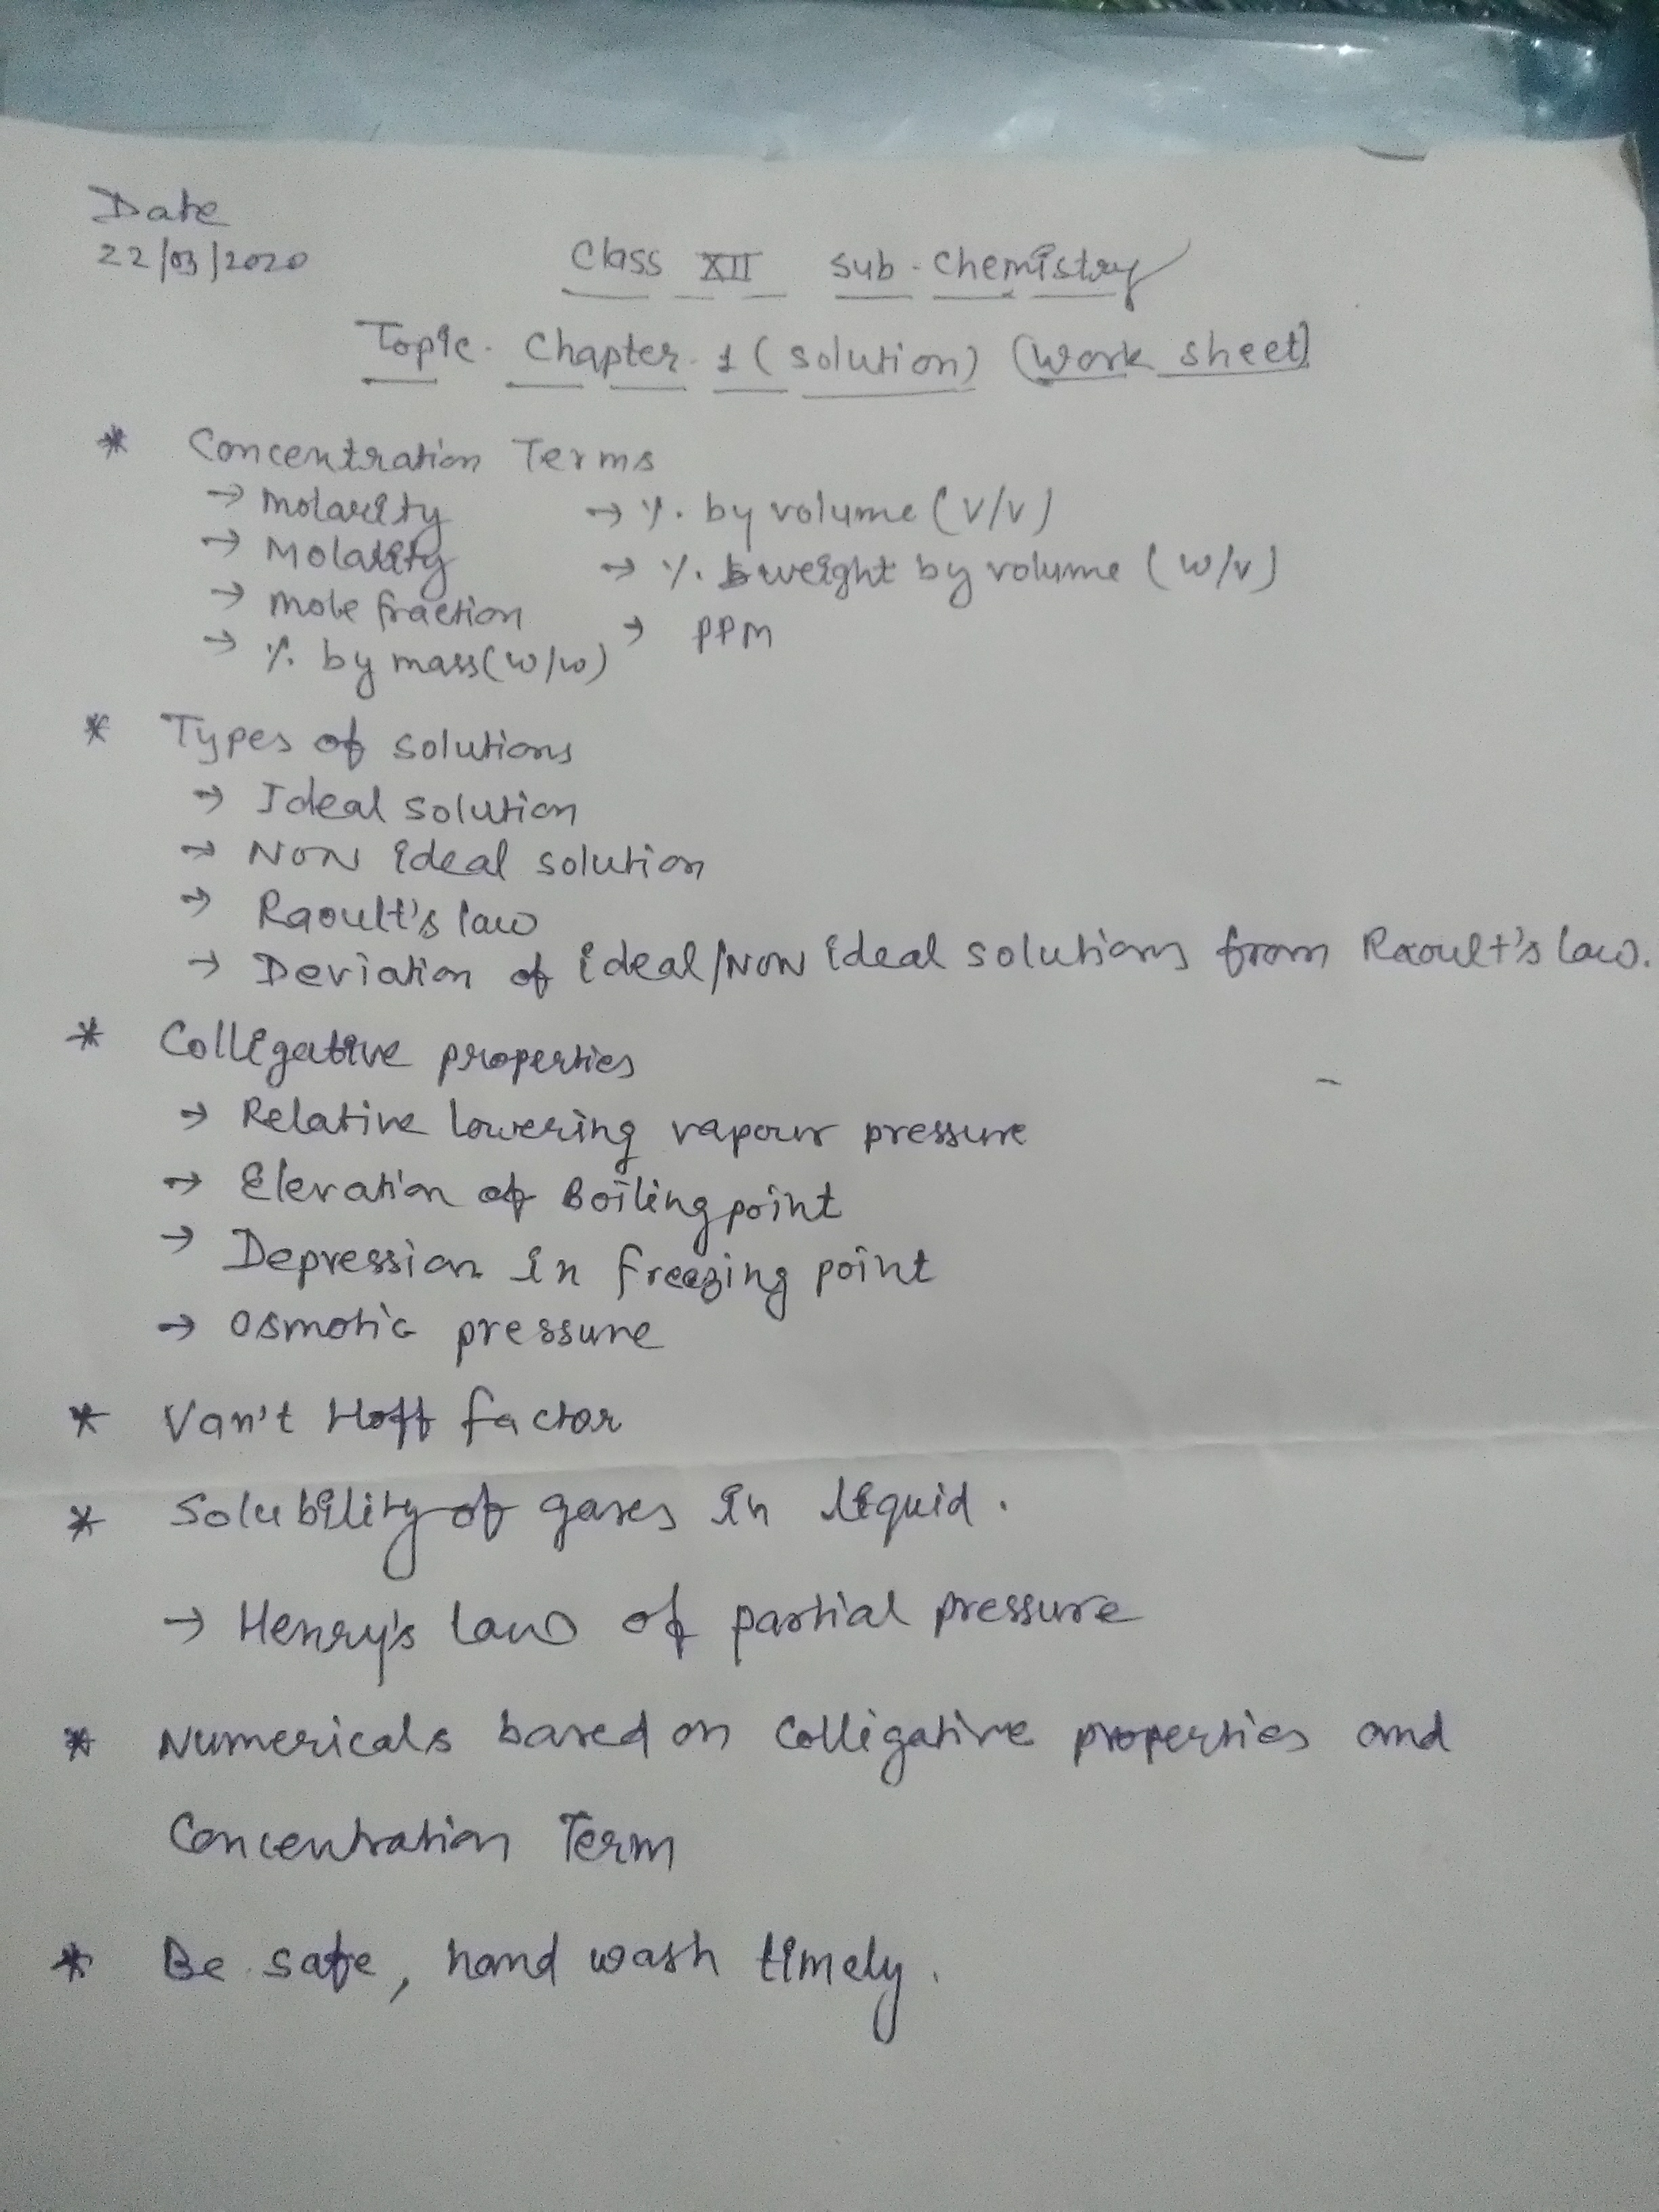 Date
22/03/2020
Class XII sub. Chemistry
Topic. Chapter. 1 (solution) (Work sheet)
* Concentration Terms
→ Molarity → %. by volume (v/v)
→ Molality → %. weight by volume (w/v)
→ Mole fraction → PPM
→ %. by mass (w/w)
* Types of solutions
→ Ideal solution
→ NON ideal solution
→ Raoult's law
→ Deviation of ideal/NON ideal solutions from Raoult's law.
* Colligative properties
→ Relative lowering vapour pressure
→ Elevation of Boiling point
→ Depression in freezing point
→ Osmotic pressure
* Van't Hoff factor
* Solubility of gases in liquid.
→ Henry's law of partial pressure
* Numericals based on Colligative properties and
Concentration Term
* Be safe, hand wash timely.